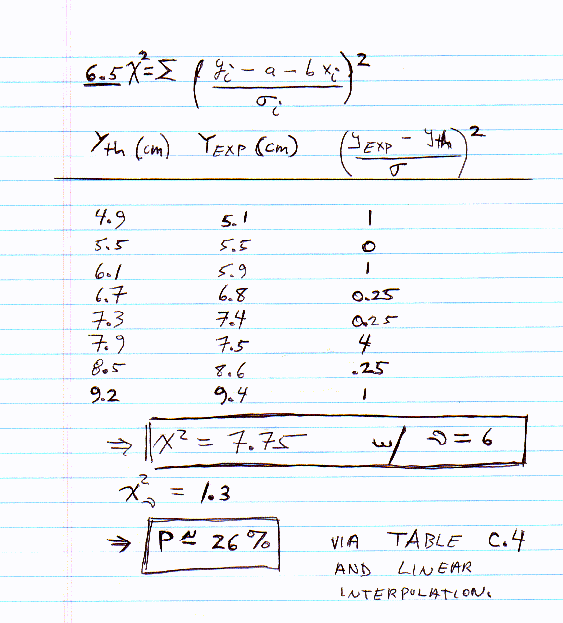 6.5 χ² = Σ ( (yᵢ - a - b xᵢ) / σᵢ )²
Yth (cm) YEXP (cm) ( (yEXP - yth) / σ )²
4.9 5.1 1
5.5 5.5 0
6.1 5.9 1
6.7 6.8 0.25
7.3 7.4 0.25
7.9 7.5 4
8.5 8.6 .25
9.2 9.4 1
⇒ χ² = 7.75 w/ ν = 6
χ²ν = 1.3
⇒ P ≅ 26% VIA TABLE C.4
AND LINEAR
INTERPOLATION.